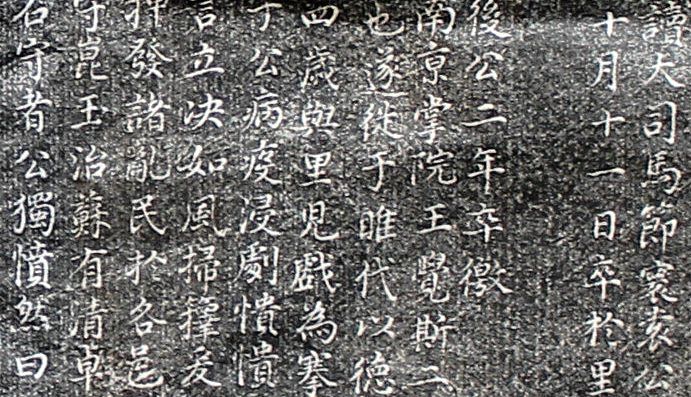 讀大司馬節寰袁公
十月十一日卒於里
後公二年卒徼
南京掌院王覺斯二
也遂徙于睢代以德
四歲與里兒戲為搴
于公病疫浸劇憒憒
言立决如風掃籜爰
押發諸亂民於各邑
守崑玉治蘇有清
右守者公獨憤然曰